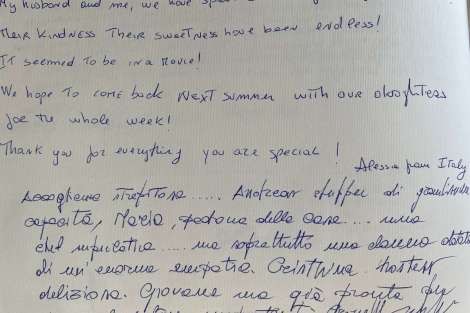 My husband and me, we have
Their kindness Their sweetness have been endless!
It seemed to be in a movie!
We hope to come back next summer with our doughters
for the whole week!
Thank you for everything you are special!
Alessia from Italy
Accoglienza strepitosa ..... Andrea di
capacità, Maria, padrona della casa ... una
chef ..... ma soprattutto una donna dotata
di un' enorme empatia. Cristina hostess
deliziosa. Giovane ma già pronta